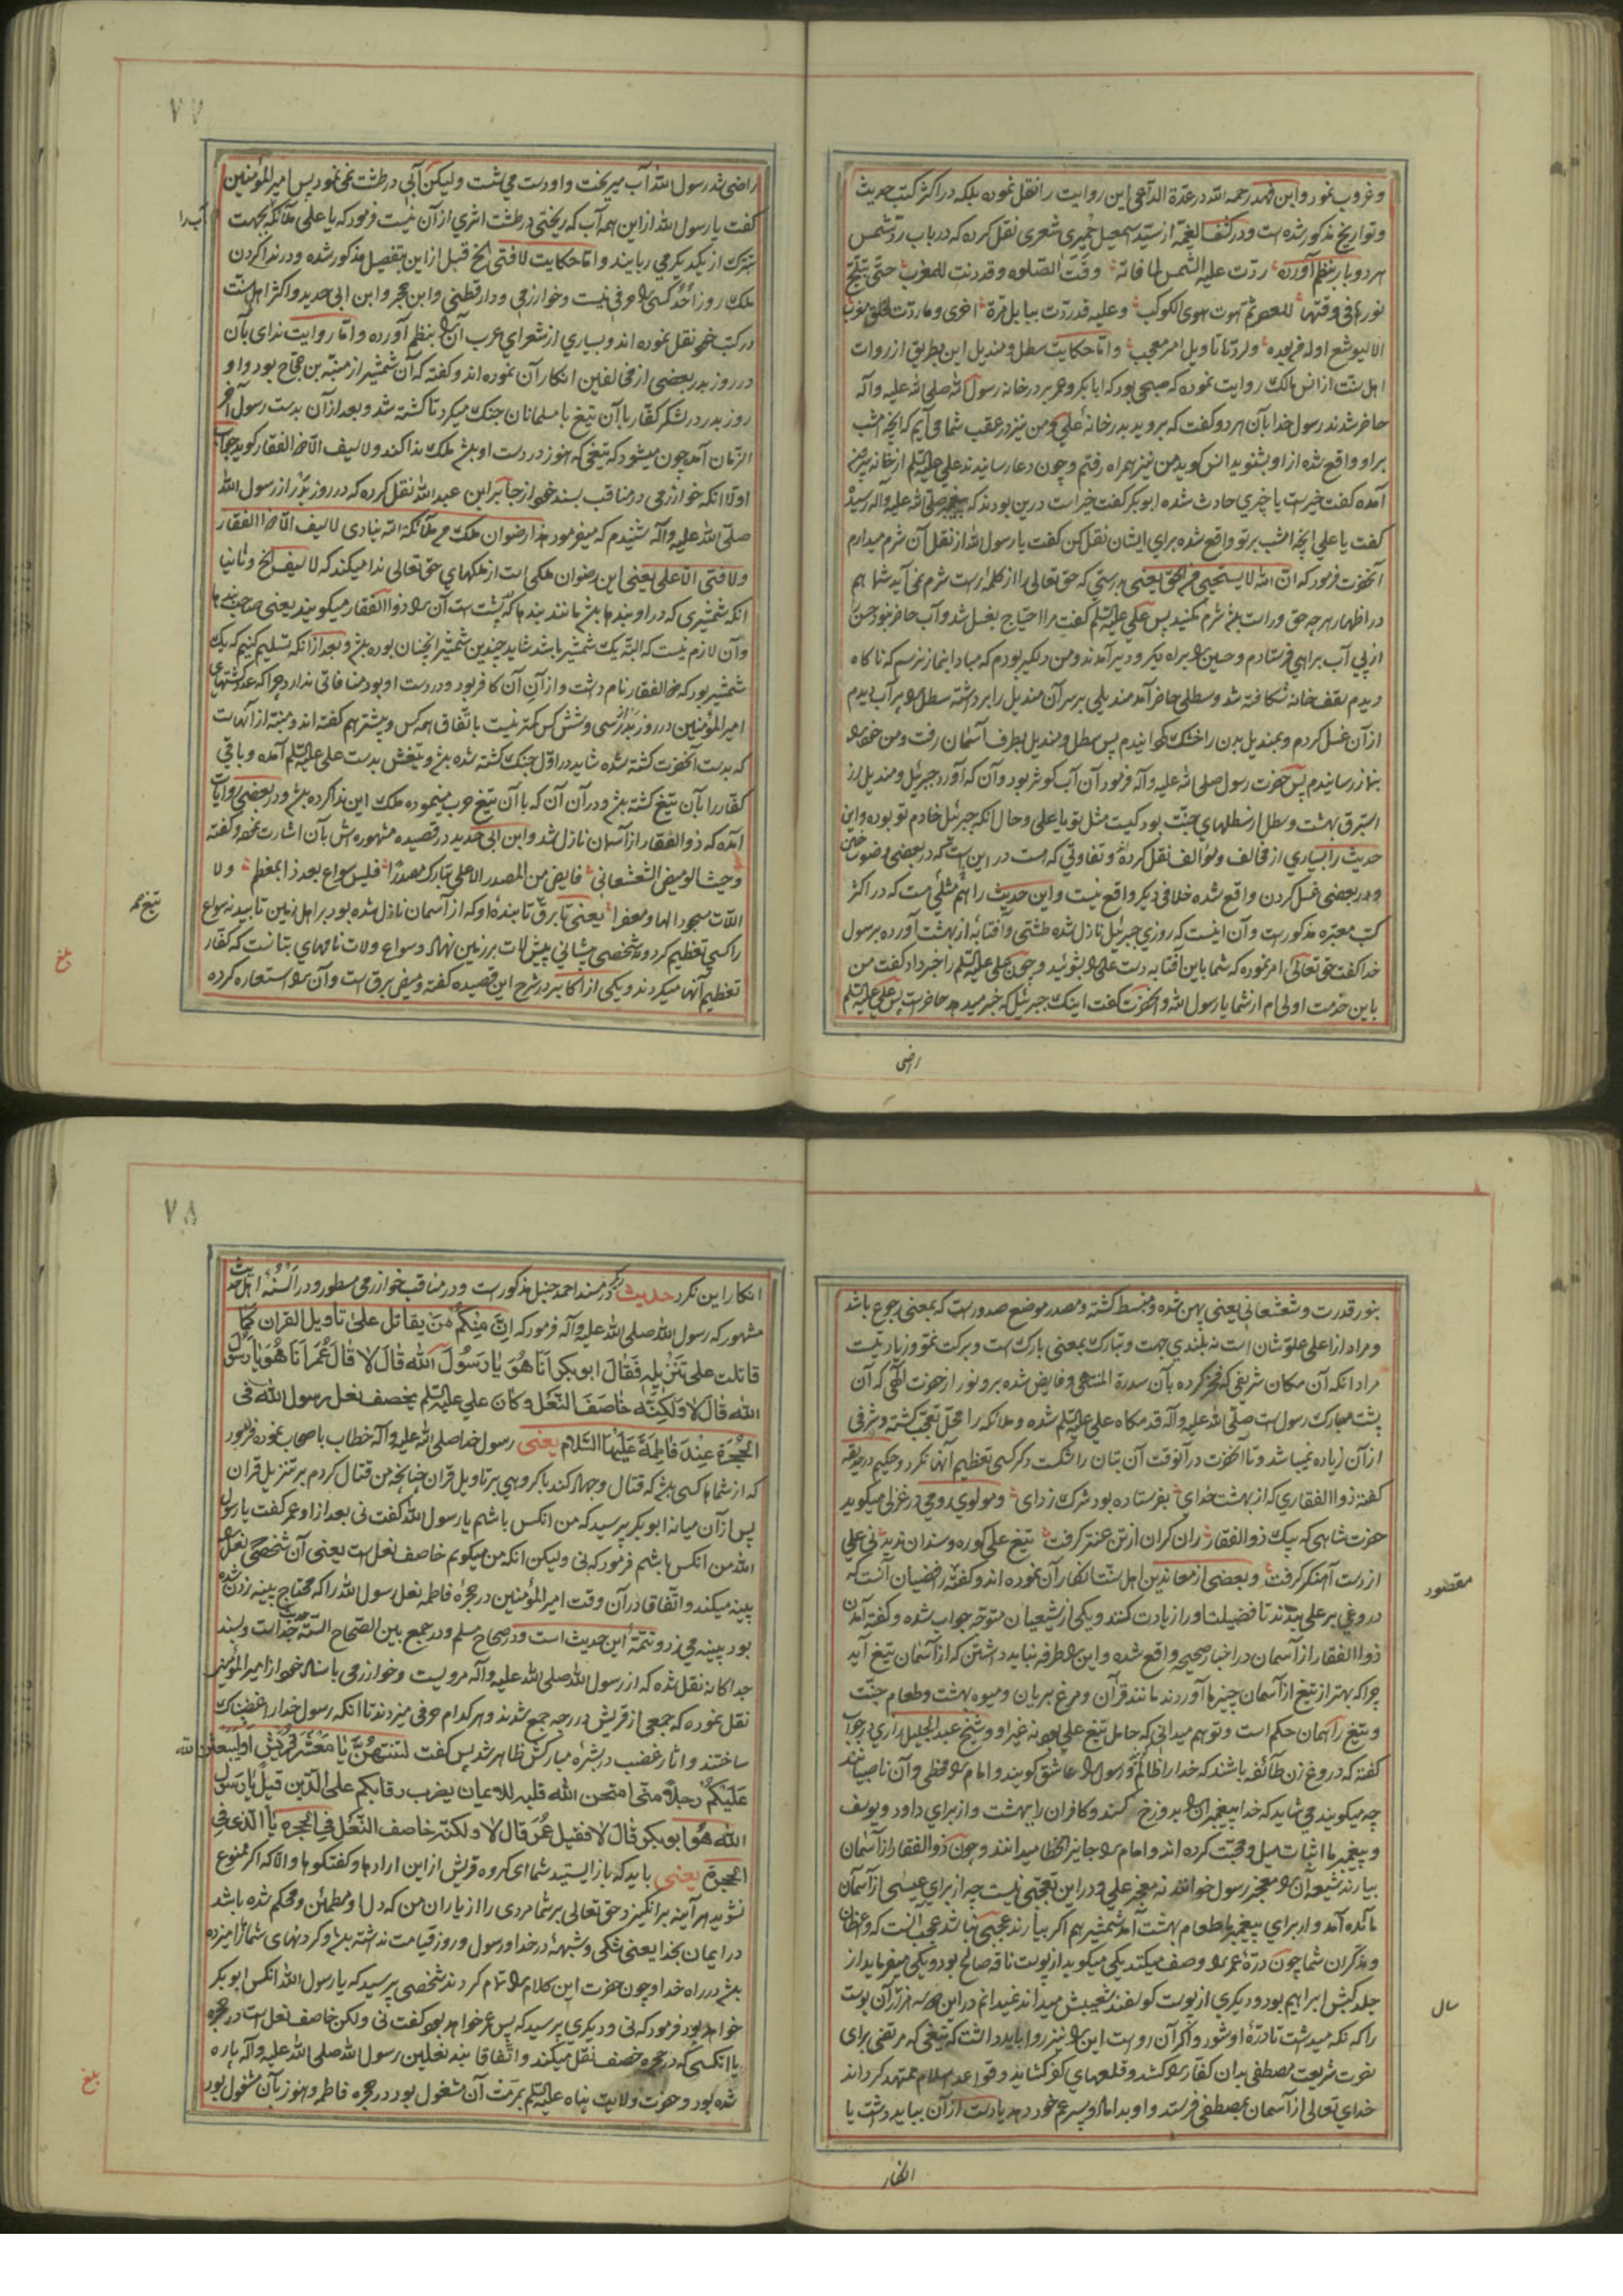 و غروب نمود و ابن فهد رحمه الله در عدة الداعی این روایت را نقل نموده بلکه در اکثر کتب حدیث
و تواریخ مذکور شده است و در کشف الغمه از سید اسمعیل حمیری شعری نقل کرده که در باب رد شمس
هر دو بار بنظم آورده ردّت علیه الشمس لما فاته وقت الصلوه وقد دنت للمغرب حتّی تبلّج
نورها فی وقتها للعصر ثم هوت هوی الکوکب وعلیه قد ردّت ببابل مرة اخری وما ردّت لخلق مغرب
الا لیوشع اوله من بعده ولردّها تاویل امر معجب و اما حکایت سطل و مندیل ابن بطریق از روات
اهل سنت از انس مالک روایت نموده که صبحی بود که ابابکر و عمر بر در خانه رسول الله صلی الله علیه وآله
حاضر شدند رسول خدا بآن هر دو گفت که بروید بدر خانه علی و من نیز در عقب شما می آیم که آنچه امشب
بر او واقع شده از او بشنوید انس کوید من نیز همراه رفتم و چون دعا رسانیدند علی علیه السلم از خانه بیرون
آمده گفت خیرست یا چیزی حادث شده ابوبکر گفت خیر است درین بودند که پیغمبر صلی الله علیه وآله رسید
گفت یا علی آنچه امشب بر تو واقع شده برای ایشان نقل کن گفت یا رسول الله از نقل آن شرم میدارم
آنحضرت فرمود که انّ الله لا یستحیی من الحق یعنی بدرستی که حق تعالی را از کلمه راست شرم نمی آید شما هم
در اظهار هر چه حق و راست باشد شرم مکنید پس علی علیه السلم گفت مرا احتیاج بغسل شد و آب حاضر نبود حسن
از پی آب براهی فرستادم و حسین را براه دیکر و دیر آمدند و من دلگیر بودم که مبادا بنماز نرسم که ناگاه
دیدم سقف خانه شکافته شد و سطلی حاضر آمد مندیلی بر سر آن مندیل را برداشته سطل را پر آب دیدم
از آن غسل کردم و بمندیل بدن را خشک گردانیدم پس سطل و مندیل بطرف آسمان رفت و من خود را
بنماز رسانیدم پس حضرت رسول صلی الله علیه وآله فرمود آن آب کوثر بود و آن که آورد جبرئل و مندیل از
استبرق بهشت و سطل از سطلهای جنت بود کیست مثل تو یا علی و حال آنکه جبرئل خادم تو بوده و این
حدیث را بسیاری از مخالف و مؤالف نقل کرده و تفاوتی که هست در این است که در بعضی وضو ساختن
و در بعضی غسل کردن واقع شده خلافی دیگر واقع نیست و این حدیث را هم مثلی است که در اکثر
کتب معتبره مذکور است و آن اینست که روزی جبرئیل نازل شده طشتی و آفتابه از بهشت آورده بر رسول
خدا گفت حق تعالی امر نموده که شما باین آفتابه دست علی را بشوئید و چون علی علیه السلم را خبر داد گفت من
باین خدمت اولی ام از شما یا رسول الله و آنحضرت گفت اینک جبرئیل که خبر میدهد حاضر است پس علی علیه السلم
راضی
۷۷
راضی شد رسول الله آب میریخت و او دست می شست ولیکن آبی در طشت نمی نمود پس امیرالمؤمنین
گفت یا رسول الله از این همه آب که ریختی در طشت اثری از آن نیست فرمود که یا علی ملائکه بجهت
آب را
تبرک از یکدیکر می ربایند و اما حکایت لا فتی الخ قبل از این بتفصیل مذکور شده و در ندا کردن
ملک روز اُحُد کسی را حرفی نیست و خوارزمی و دارقطنی و ابن حجر و ابن ابی حدید و اکثر اهل سنت
در کتب خود نقل نموده اند و بسیاری از شعرای عرب آن را بنظم آورده و اما روایت ندای بآن
در روز بدر بعضی از مخالفین انکار آن نموده اند و گفته که آن شمشیر از منبّه بن حجاج بود و او
روز بدر در لشکر کفار با آن تیغ با مسلمانان جنک میکرد تا کشته شد و بعد از آن بدست رسول آخر
الزمان آمد چون میشود که تیغی که هنوز در دست او باشد ملک ندا کند و لا سیف الا ذو الفقار کوید جواب
اولا آنکه خوارزمی در مناقب بسند خود از جابر ابن عبد الله نقل کرده که در روز بدر از رسول الله
صلی الله علیه وآله شنیدم که میفرمود هذا رضوان ملک من ملائکة الله ینادی لا سیف الا ذو الفقار
ولا فتی الا علی یعنی این رضوان ملکی است از ملکهای حق تعالی ندا میکند که لا سیف الخ و ثانیا
آنکه شمشیری که در او بندها باشد مانند بندها که پشت است آن را ذو الفقار میکویند یعنی صاحب بندها
و آن لازم نیست که البته یک شمشیر باشد شاید چندین شمشیر آنچنان بوده باشد و بعد از آنکه تسلیم کنیم که یک
شمشیر بود که ذو الفقار نام داشت و از آن آن کافر بود و در دست او بود منافاتی ندارد چرا که عدد کشتهای
امیرالمؤمنین در روز بدر از سی و شش کس کمتر نیست باتفاق همه کس و بیشتر هم گفته اند و منبه از آنهاست
که بدست آنحضرت کشته شده شاید در اول جنک کشته شده باشد و تیغش بدست علی علیه السلم آمده و باقی
کفار را بآن تیغ کشته باشد و در آن آن که با آن تیغ حرب مینموده ملک این ندا کرده باشد و در بعضی روایات
آمده که ذو الفقار از آسمان نازل شد و ابن ابی حدید در قصیده مشهوره اش بآن اشارت نموده گفته
و حیث الومیض الشعشعانی فایض من المصدر الاعلی تبارک مصدرا فلیس سواع بعد ذا بمعظم ولا
اللات مسجودا لها و معفرا یعنی تا برق تابنده او که از آسمان نازل شده بود بر اهل زمین تابید نه سواع
تیغ
را کسی تعظیم کرد و نه شخصی پیشانی پیش لات بر زمین نهاد و سواع و لات نامهای بتانست که کفار
تعظیم آنها میکردند و یکی از اکابر در شرح این قصیده گفته ومیض برق است و آن را استعاره کرده
بلغ
بنور قدرت و شعشعانی یعنی پهن شده و منبسط کشته و مصدر موضع صدور است که بمعنی رجوع باشد
و مراد از اعلی علو شان است نه بلندی جهت و تبارک بمعنی بارک است و برکت نمو و زیادتیست
مراد آنکه آن مکان شریفی که فخر کرده بآن سدرة المنتهی و فایض شده بر و نور از حضرت الهی که آن
پشت مبارک رسول است صلی الله علیه وآله قدمکاه علی علیه السلم شده و ملائکه را محل تعجب کشته و شرفی
از آن زیاده نمیباشد و تا آنحضرت در آنوقت آن بتان را شکست دگر کسی تعظیم آنها نکرد و حکیم در حدیقه
گفته ذوالفقاری که از بهشت خدای بفرستاده بود شرک زدای و مولوی رومی در غزلی میکوید
حضرت شاهی که بیک ذوالفقار ران گران از تن عنتر گرفت تیغ علی کوره و سندان ندید نی علی
از دست آهنگر گرفت و بعضی از معاندین اهل سنت انکار آن نموده اند و گفته رافضیان آنست که
مقصود
دروغی بر علی بندند تا فضیلت او را زیادت کنند و یکی از شیعیان متوجه جواب شده و گفته آمدن
ذوالفقار از آسمان در اخبار صحیحه واقع شده و این را طرفه نباید داشتن که از آسمان تیغ آید
چرا که بهتر از تیغ از آسمان چیزها آوردند مانند قرآن و مرغ بریان و میوه بهشت و طعام جنت
و تیغ را همان حکم است و تو هم میدانی که حامل تیغ علی بود نه غیر او و شیخ عبد الجلیل رازی در جواب
گفته که دروغ زن طائفه باشند که خدا را ظالم و رسول را عاشق گویند و امام را مخطی و آن ناصبیانند
چه میکویند می شاید که خدا پیغمبران را بدوزخ کند و کافران را ببهشت و از برای داود و یوسف
و پیغمبر ما اثبات میل و محبت کرده اند و امام را جایز الخطا میدانند و چون ذوالفقار از آسمان
بیارند شیعه آن را معجز رسول خوانند نه معجز علی و در این تعجبی نیست چه از برای عیسی از آسمان
مائده آمد و از برای پیغمبر ما طعام بهشت آمد شمشیر هم اگر بیارند عجبی نباشد عجب آنست که واعظان
و مذکران شما چون درّهٔ عمر را وصف میکنند یکی میکوید از پوست ناقه صالح بود و یکی میفرماید از
جلد کبش ابراهیم بود و دیکری از پوست گوسفند شعیبش میداند نمیدانم در این
سال
آن پوست
را که نکه میداشت تا درّهٔ او شود و اگر آن رواست این را نیز روا باید داشت که تیغی که مرتضی برای
نصرت شریعت مصطفی بدان کفار را کشد و قلعهای کفر کشاید و قواعد اسلام ممهد گرداند
خدای تعالی از آسمان بمصطفی فرستد و او بداماد و پسر عم خود دهد یا دست از آن بباید داشت یا
انکار
۷۸
انکار این نکرد حدیث دیگر در مسند احمد حنبل مذکور است و در مناقب خوارزمی مسطور و در السنهٔ اهل حدیث
مشهور که رسول الله صلی الله علیه وآله فرمود که انّ منکم من یقاتل علی تاویل القران کما
قاتلت علی تنزیله فقال ابوبکر انا هو یا رسول الله قال لا قال عمر انا هو یا رسول
الله قال لا ولکنّه خاصف النعل وکان علی علیه السلم یخصف نعل رسول الله فی
الحجرة عند فاطمة علیها السلام یعنی رسول خدا صلی الله علیه وآله خطاب باصحاب نموده فرمود
که از شما ها کسی باشد که قتال و جهاد کند با گروهی بر تاویل قران چنانچه من قتال کردم بر تنزیل قران
پس از آن میانه ابوبکر پرسید که من آنکس باشم یا رسول الله گفت نی بعد از او عمر گفت یا رسول
الله من آنکس باشم فرمود که نی ولیکن آنکه من میگویم خاصف نعل است یعنی آن شخصی که نعل را
پینه میکند و اتفاقا در آن وقت امیرالمؤمنین در حجرهٔ فاطمه نعل رسول الله را که محتاج پینه زدن شده
بود پینه می زد و تتمهٔ این حدیث است و در صحاح مسلم و در جمع بین الصحاح الستة جدا است و بسند
جداگانه نقل شده که از رسول الله صلی الله علیه وآله مرویست و خوارزمی باسناد خود از امیرالمؤمنین
نقل نموده که جمعی از قریش در رحبه جمع شدند و هر کدام حرفی میزدند تا آنکه رسول خدا را غضبناک
ساختند و آثار غضب در بشرهٔ مبارکش ظاهر شد پس گفت لتنتهنّ یا معشر قریش او لیبعثن الله
علیکم رجلا منّی امتحن الله قلبه للایمان یضرب رقابکم علی الدین قیل یا رسول
الله هو ابوبکر قال لا فقیل عمر قال لا ولکنّه خاصف النعل فی الحجرة یا الذی فی
الحجرة یعنی باید که باز ایستید شما ای گروه قریش از این اراد ها و گفتگو ها و الا که اگر ممنوع
نشوید هر آینه برانگیزد حق تعالی بر شما مردی را از یاران من که دل او مطمئن و محکم شده باشد
در ایمان بخدا یعنی شکی و شبههٔ در خدا و رسول و روز قیامت نداشته باشد و گردنهای شما را میزده
باشد در راه خدا و چون حضرت این کلام را تمام کردند شخصی پرسید که یا رسول الله آنکس ابوبکر
خواهد بود فرمود که نی و دیگری پرسید که پس عمر خواهد بود گفت نی ولکن خاصف نعل است در حجره
یا آنکسی که در حجره خصف نعل میکند و اتفاقا بند نعلین رسول الله صلی الله علیه وآله پاره
شده بود و حضرت ولایت پناه علیه السلم بمرمت آن مشغول بود در حجره فاطمه و هنوز بآن مشغول بود
بلغ